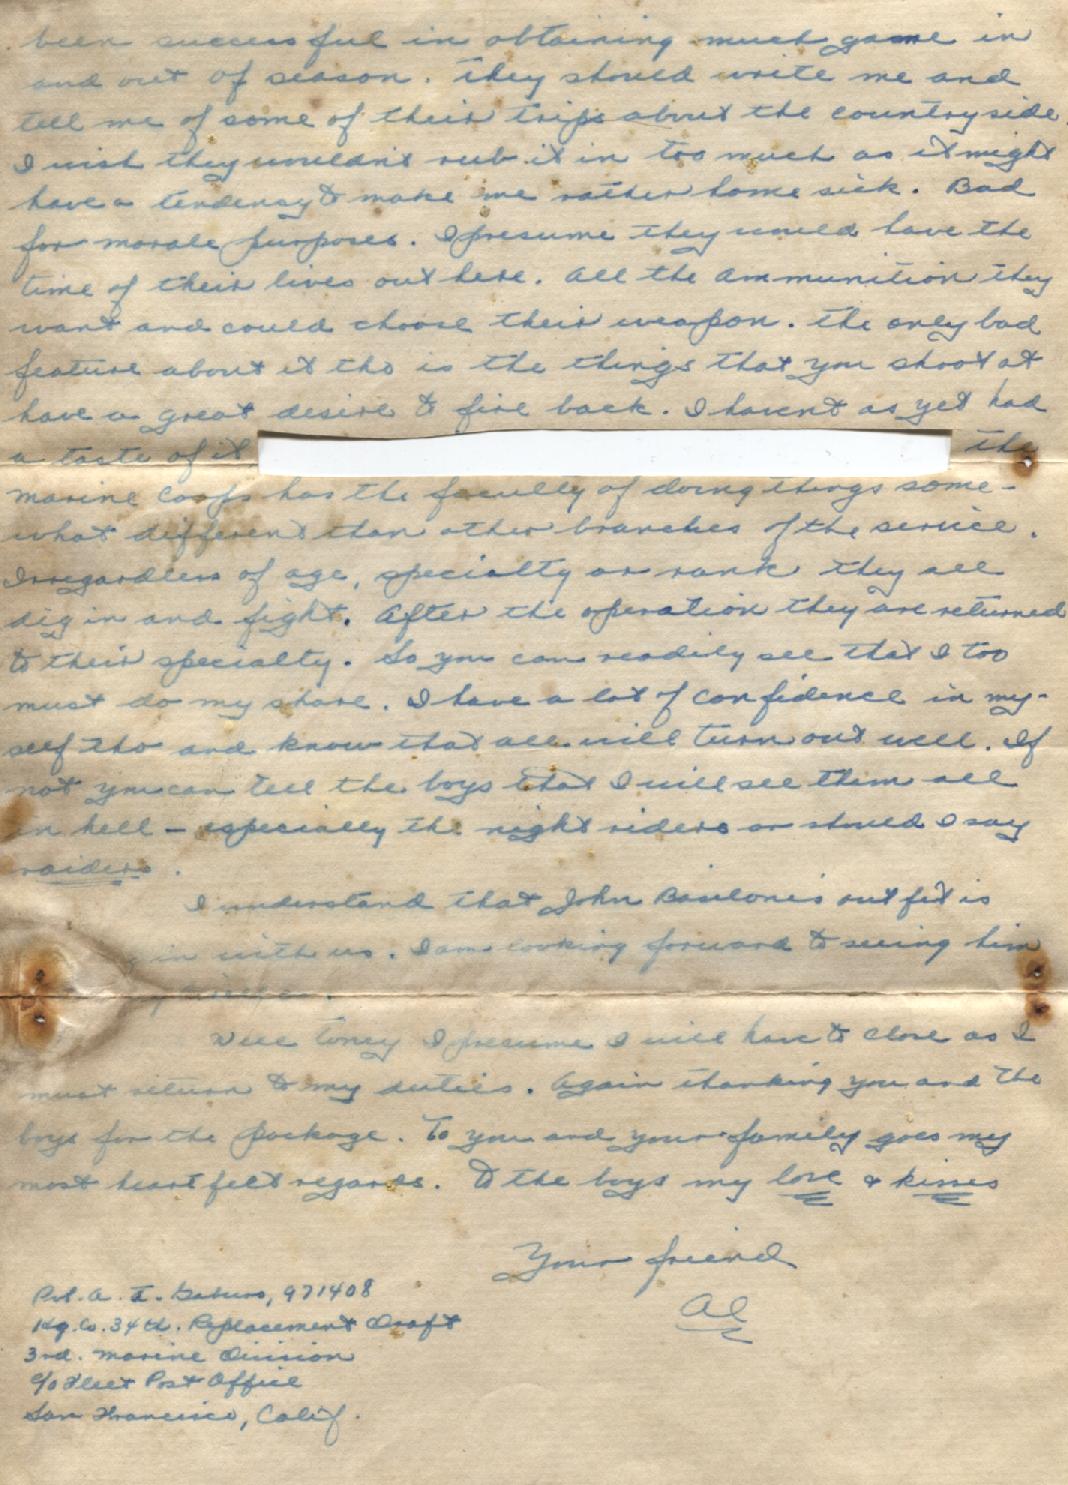 been successful in obtaining much game in
and out of season. They should write me and
tell me of some of their trips about the countryside.
I wish they wouldn't rub it in too much as it might
have a tendensy to make me rather home sick. Bad
for morale purposes. I presume they would have the
time of their lives out here. All the ammunition they
want and could choose their weapon. The only bad
feature about it tho is the things that you shoot at
have a great desire to fire back. I havent as yet had
a taste of it the
Marine Corps has the faculty of doing things some-
what different than other branches of the service.
Irregardless of age, specialty or rank they all
dig in and fight. After the operation they are returned
to their specialty. So you can readily see that I too
must do my share. I have a lot of confidence in my-
self tho and know that all will turn out well. If
not you can tell the boys that I will see them all
in hell - especially the night riders or should I say
raiders.
I understand that John Basilone's outfit is
in with us. I am looking forward to seeing him
Well Toney I presume I will have to close as I
must return to my duties. Again thanking you and the
boys for the package. To you and your family goes my
most heart felt regards. To the boys my love & kisses
Your friend
Al
Pvt. A. I. Gaburo, 971408
Hq. Co. 34th. Replacement Draft
3rd. Marine Division
c/o Fleet Post Office
San Francisco, Calif.